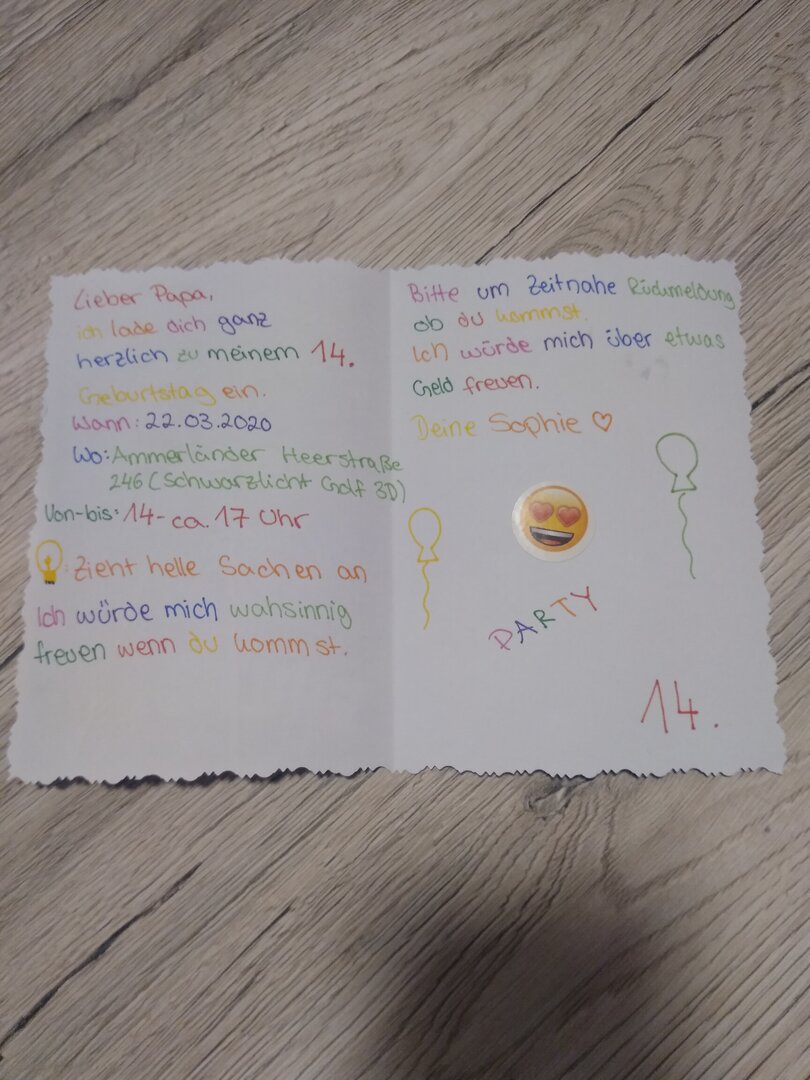 Lieber Papa,
ich lade dich ganz
herzlich zu meinem 14.
Geburtstag ein.
Wann: 22.03.2020
Wo: Ammerländer Heerstraße
246 (Schwarzlicht Golf 3D)
Von-bis: 14- ca. 17 Uhr
: Zieht helle Sachen an
Ich würde mich wahsinnig
freuen wenn du kommst.
Bitte um Zeitnahe Rückmeldung
ob du kommst.
Ich würde mich über etwas
Geld freuen.
Deine Sophie ♡
PARTY
14.